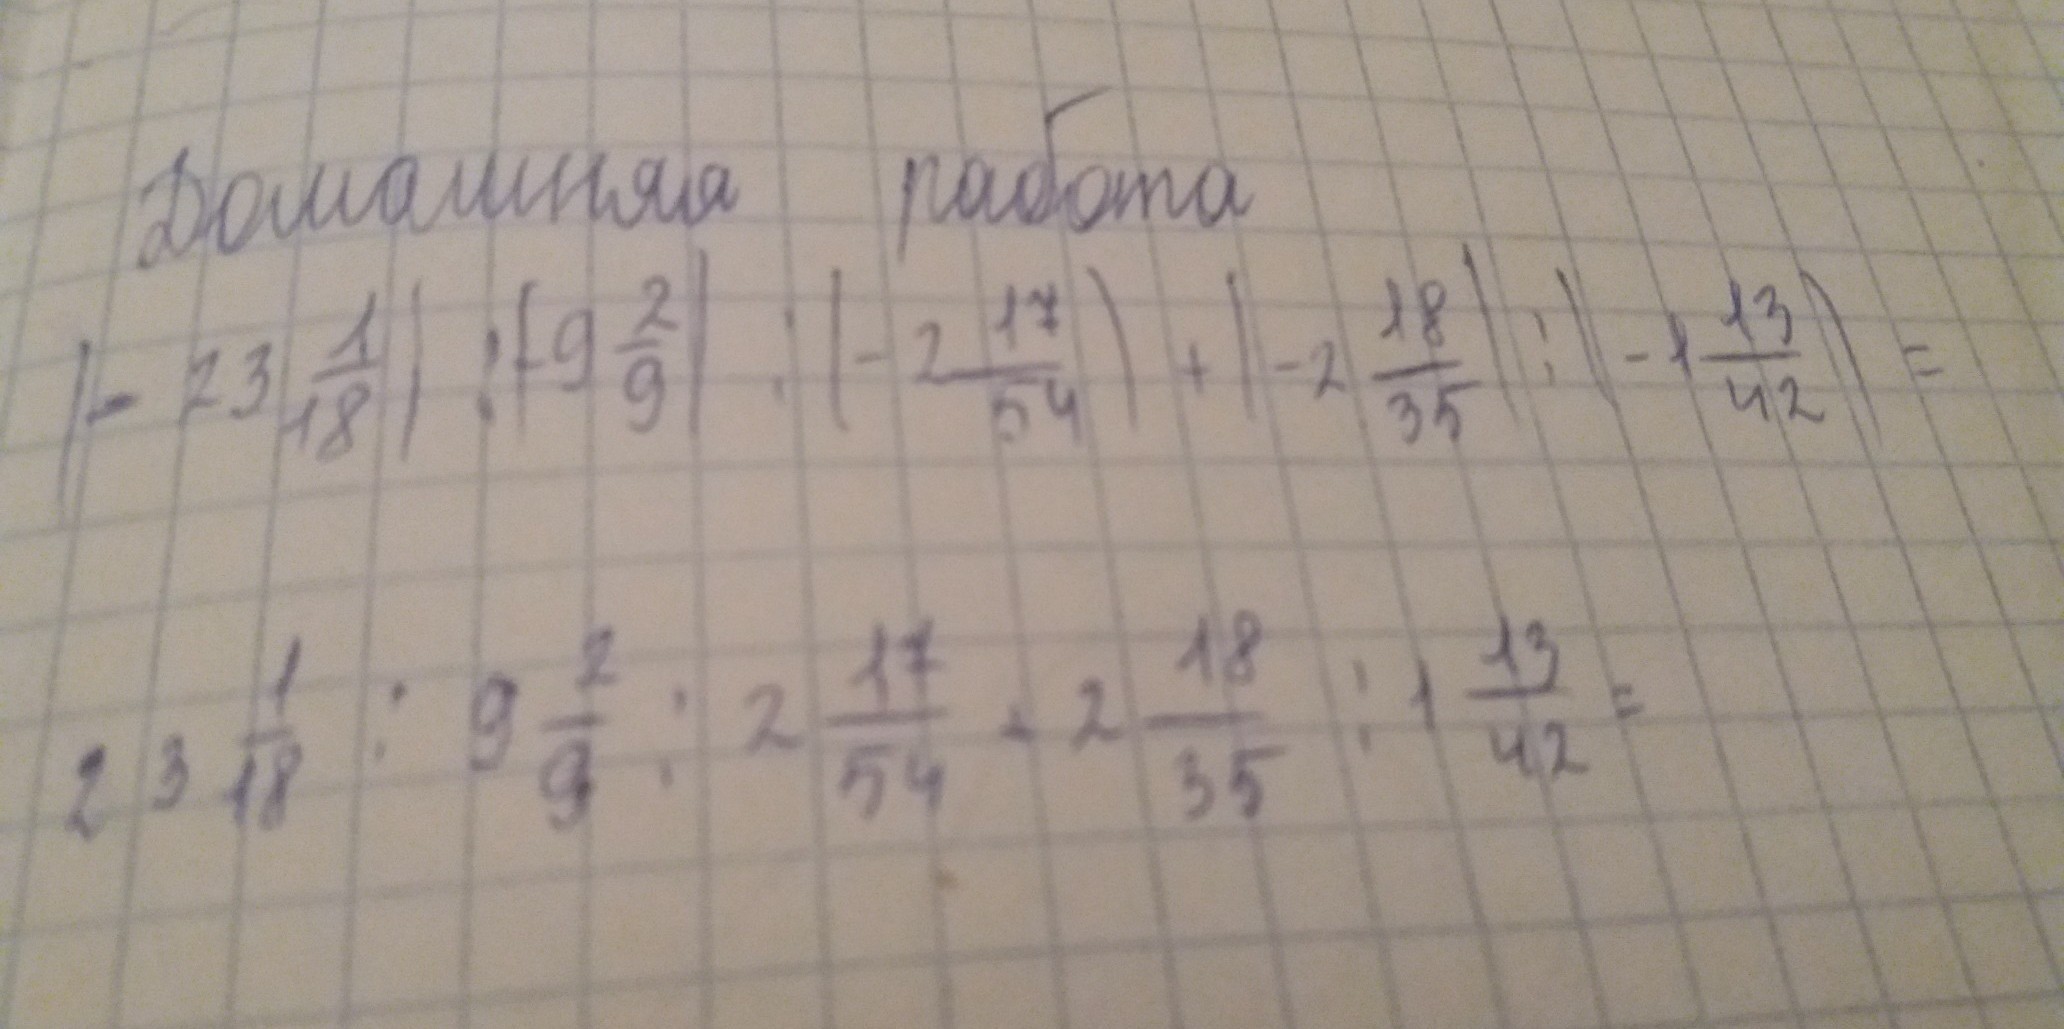 Домашняя работа
|- 23 1/18| : |-9 2/9| : |-2 17/54| + |-2 18/35| : |-1 13/42| =
23 1/18 : 9 2/9 : 2 17/54 + 2 18/35 : 1 13/42 =